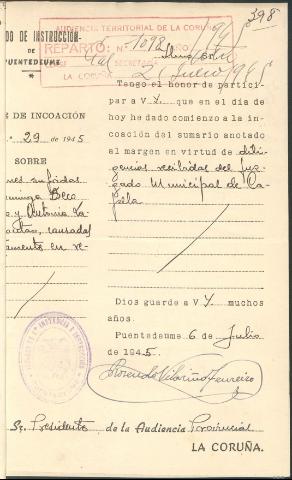 398
AUDIENCIA TERRITORIAL DE LA CORUÑA
REPARTO: N.º 1098 AÑO
SECRETARÍA
LA CORUÑA 21 Julio 1945
DO DE INSTRUCCIÓN
DE
PUENTEDEUME
E DE INCOACIÓN
º 29 de 1945
SOBRE
nes sufridas
minga Deco
o y Antonia La
causadas
amente en re-
Ilmo.
Tengo el honor de partici-
par a V. Y. que en el día de
hoy he dado comienzo a la in-
coación del sumario anotado
al margen en virtud de dili-
gencias recibidas del Juz-
gado Municipal de Ca-
pela
Dios guarde a V Y. muchos
años.
Puentedeume 6 de Julio
de 1945.
Rosendo Vilariño Ferreiro
Sr. Presidente de la Audiencia Provincial
LA CORUÑA.